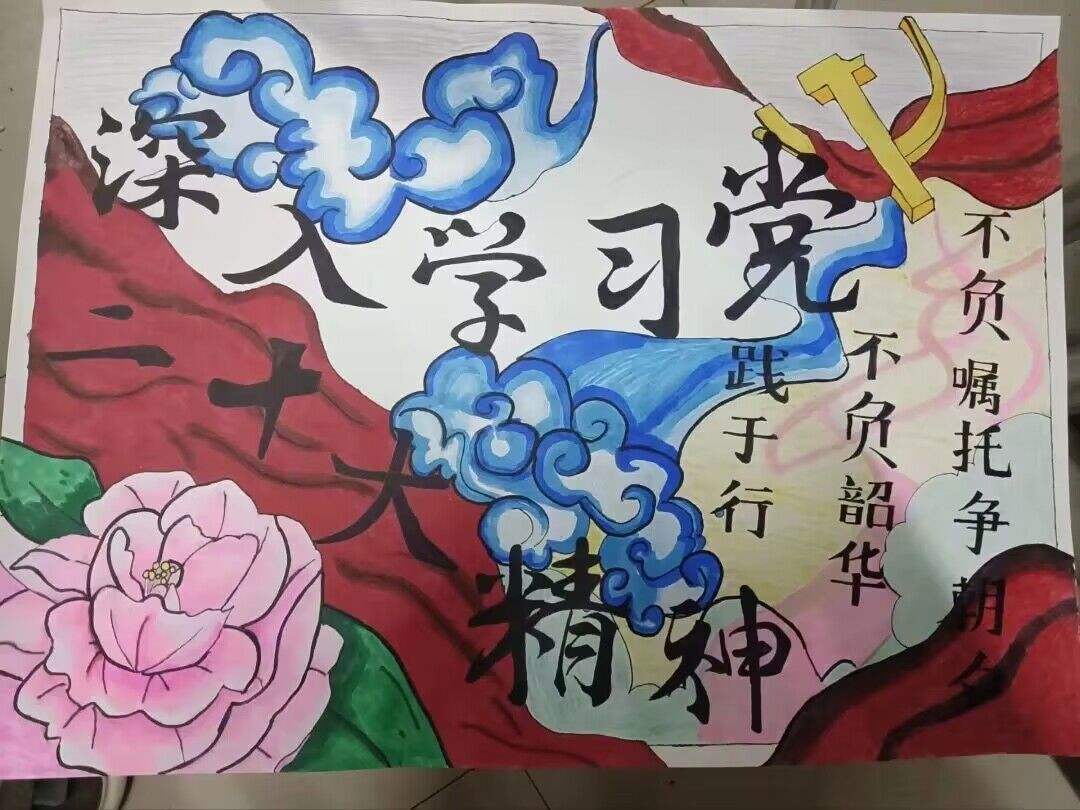 深入学习党
二十大
精神
不负嘱托争朝夕
不负韶华
践于行